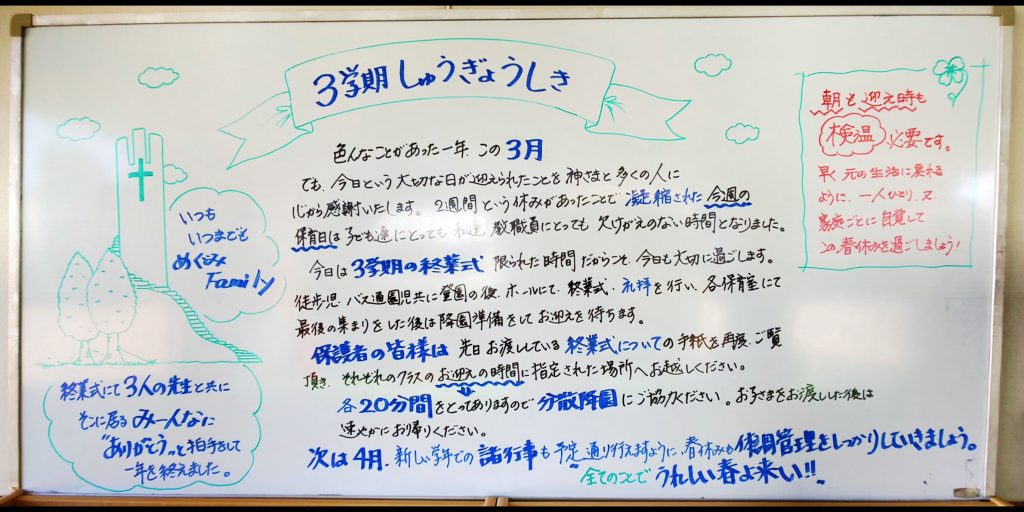 3学期しゅうぎょうしき
色んなことがあった一年 この3月
でも、今日という大切な日が迎えられたことを神さまと多くの人に
心から感謝いたします。2週間という休みがあったことで凝縮された今週の
保育日は子ども達にとっても私達 教職員にとっても欠けがえのない時間となりました。
今日は3学期の終業式 限られた時間だからこそ、今日も大切に過ごします。
徒歩児・バス通園児共に登園の後、ホールにて、終業式・礼拝を行い、各保育室にて
最後の集まりをした後は降園準備をしてお迎えを待ちます。
保護者の皆様は 先日お渡ししている終業式についての手紙を再度、ご覧
頂き、それぞれのクラスのお迎えの時間に指定された場所へお越しください。
各20分間をとってありますので分散降園にご協力ください。お子さまをお渡しした後は
速やかにお帰りください。
次は4月、新しい学年での諸行事も予定通り行えますように、春休みも体調管理をしっかりしていきましょう。
全てのことで うれしい春よ来い!!
朝も迎え時も
検温必要です。
早く元の生活に戻れる
ように、一人ひとり、又
家庭ごとに自覚して
この春休みを過ごしましょう!
いつも
いつまでも
めぐみ
Family
終業式にて3人の先生と共に
そこに居るみーんなに
"ありがとう"と拍手をして
一年を終えました。